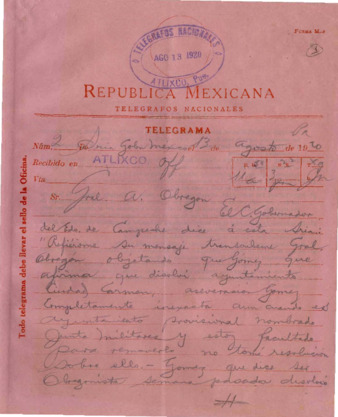 TELEGRAFOS NACIONALES
AGO 13 1920
ATLIXCO, Pue.
FORMA M-9
3
REPUBLICA MEXICANA
TELEGRAFOS NACIONALES
TELEGRAMA
Núm. 2 De Mexico 13 de agosto de 1920
Recibido en ATLIXCO Off
Vía
Sr. Gral. A. Obregon
El C. Gobernador
del Edo. de Campeche dice á esta
"Refiérome su mensaje transcribeme Gral
Obregon objetando que Gomez que
afirma que disolví ayuntamiento
Ciudad Carmen, aseveracion Gomez
Completamente inexacta aun cuando es
Ayuntamto provisional nombrado
Junta militares y estoy facultado
para removerlo no tomé resolucion
sobre ello.- Gomez que dice ser
Obregonista semana pasada disolvió
Todo telegrama debe llevar el sello de la Oficina.